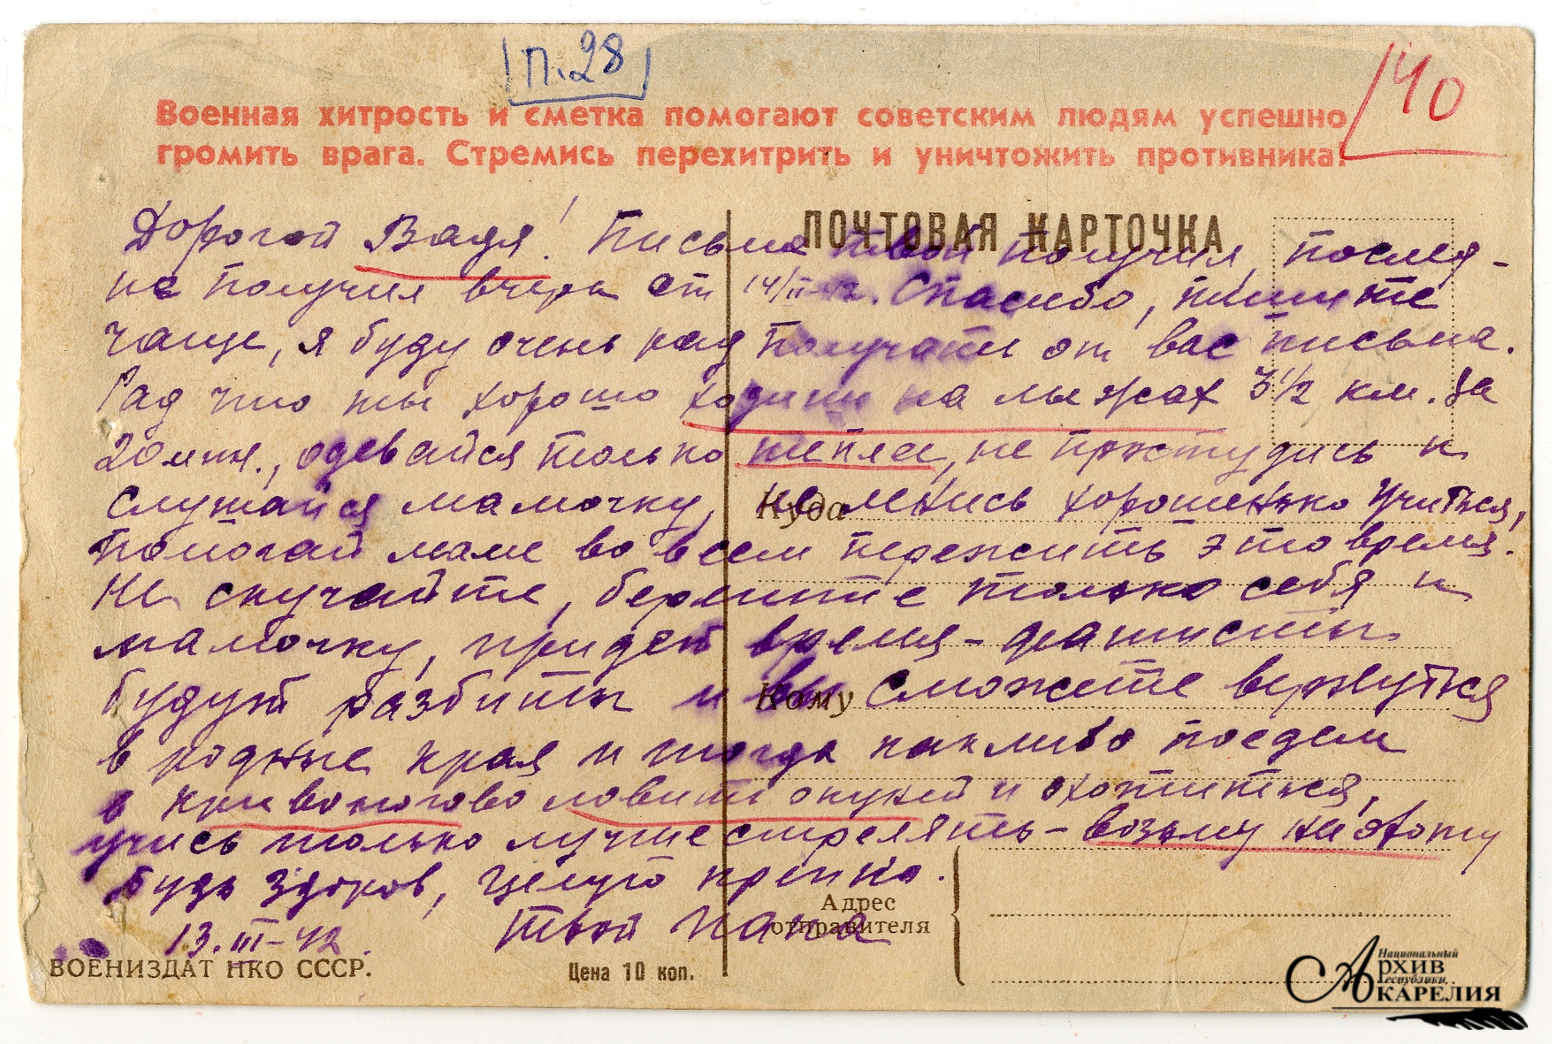 П.28
40
Военная хитрость и сметка помогают советским людям успешно
громить врага. Стремись перехитрить и уничтожить противника!
ПОЧТОВАЯ КАРТОЧКА
Дорогой Вадя! Письма твои получил, послед-
не получил вчера от 14/II-42. Спасибо, пишите
чаще, я буду очень рад получать от вас письма.
Рад что ты хорошо ходиш на лыжах 3½ км. за
20 мин., одевайся только теплее, не простудись и
слушайся мамочку, не ленись хорошенько учиться,
помогай маме во всем пережить это время.
Не скучайте, берегите только себя и
мамочку, придет время - фашисты
будут разбиты и вы сможете вернуться
в родные края и тогда поедем
в ловить окуней и охотиться,
учись только лучше стрелять - возьму на охоту
Будь здоров, целую крепко.
13.III-42. Твой папа
Куда
Кому
Адрес
отправителя
ВОЕНИЗДАТ НКО СССР.
Цена 10 коп.
Национальный
Архив
Республики
Карелия